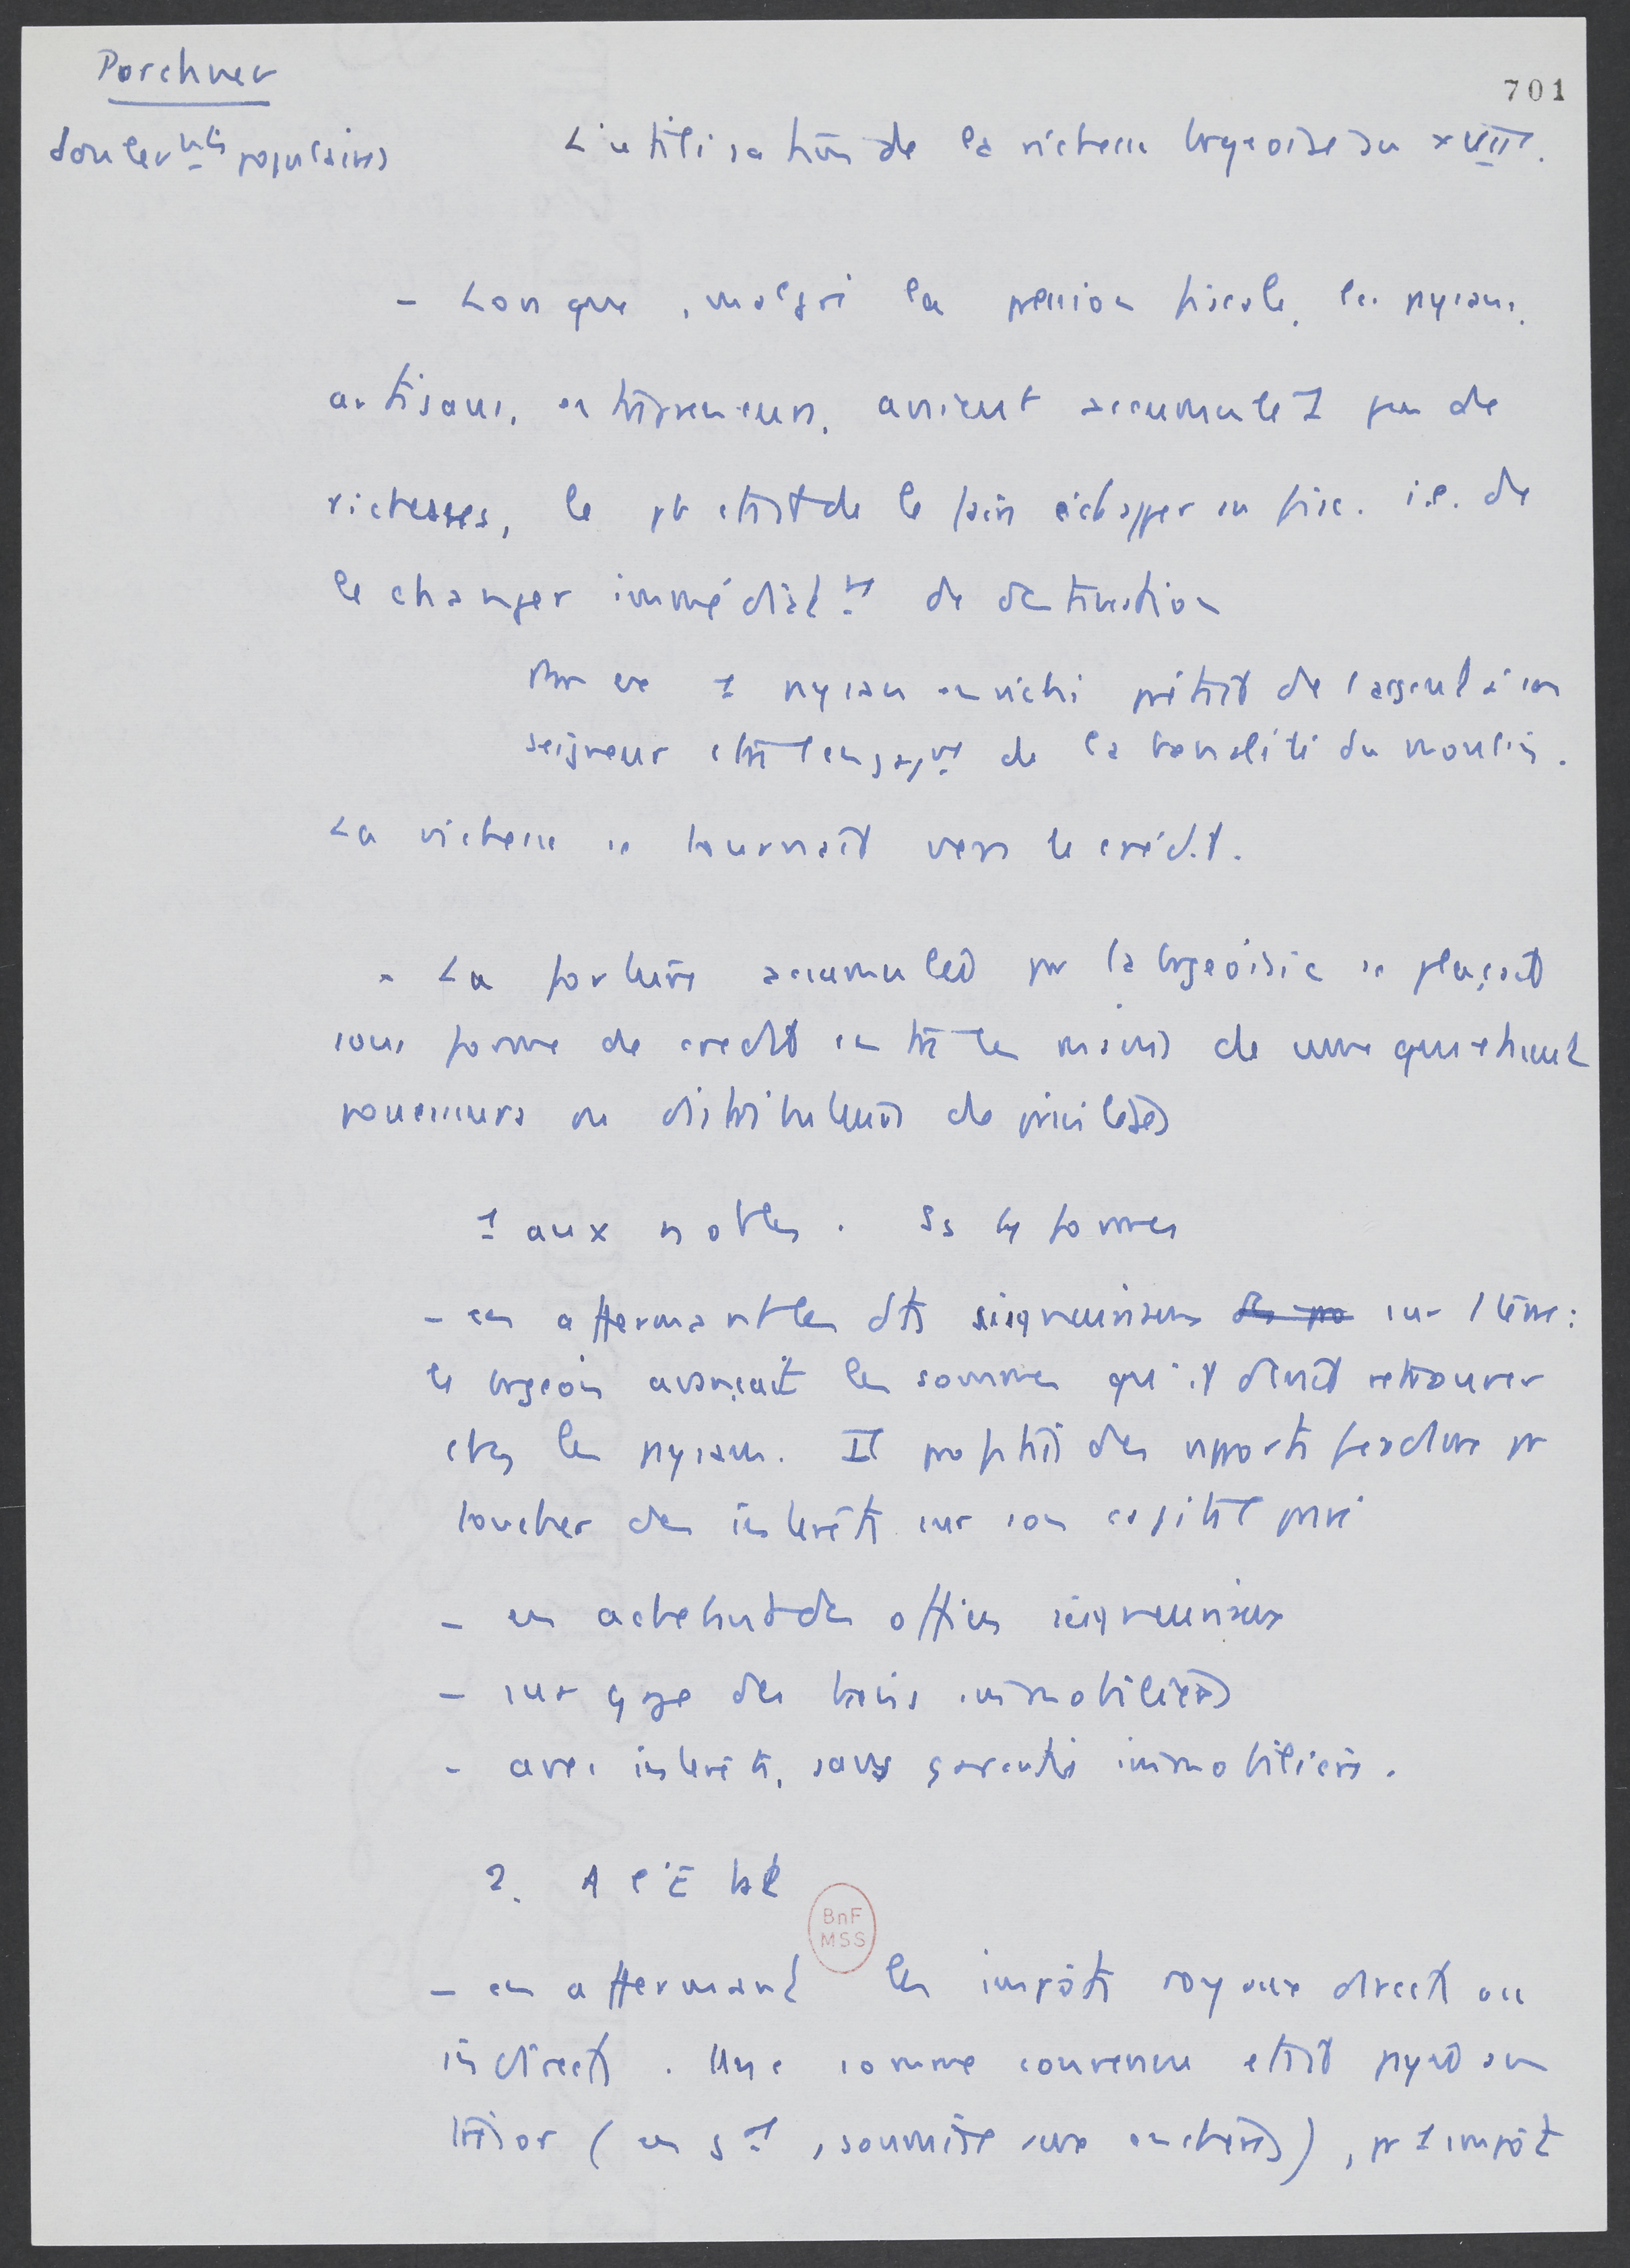 Porchnev
701
Soulev nts populaires
L'utilisation de la richesse bourgeoise au XVIIe.
- Lorsque, malgré la pression fiscale, les paysans,
artisans, entrepreneurs, avaient accumulé 1 peu de
richesses, le pb était de le faire échapper au fisc. i.e. de
le changer immédiatt de destination
1 paysan enrichi prêtait de l'argent à son
seigneur de la banalité du moulin.
La richesse se tournait vers le crédit.
- La fortune accumulée par la bourgeoisie se plaçait
sous forme de crédit entre les mains de ceux qui étaient
possesseurs ou distributeurs de privilèges
1 aux nobles. ss 4 formes
- en affermant les dts seigneuriaux sur l terre :
le bourgeois avançait les sommes qu'il devait retrouver
chez les paysans. Il profitait des rapports féodaux pr
toucher des intérêts sur son capital privé
- en achetant des offices seigneuriaux
- sur gage des biens immobiliers
- avec intérêts, sans garantie immobilière.
2. A l'Etat
BnF
MSS
- en affermant les impôts royaux directs ou
indirects. Une somme convenue était payée au
trésor (en gal, soumise aux enchères), pr 1 impôt